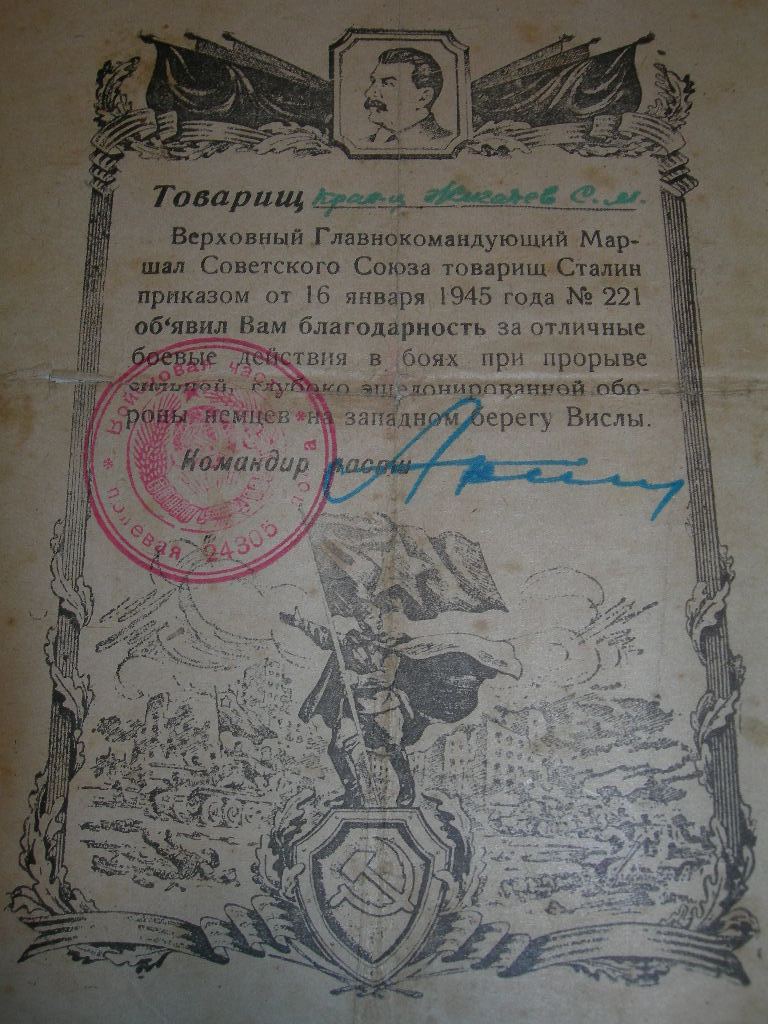 Товарищ Жигалев С. М.
Верховный Главнокомандующий Мар-
шал Советского Союза товарищ Сталин
приказом от 16 января 1945 года № 221
об‘явил Вам благодарность за отличные
боевые действия в боях при прорыве
сильной, глубоко эшелонированной обо-
роны немцев на западном берегу Вислы.
Командир части
* Войсковая часть * полевая почта 24306